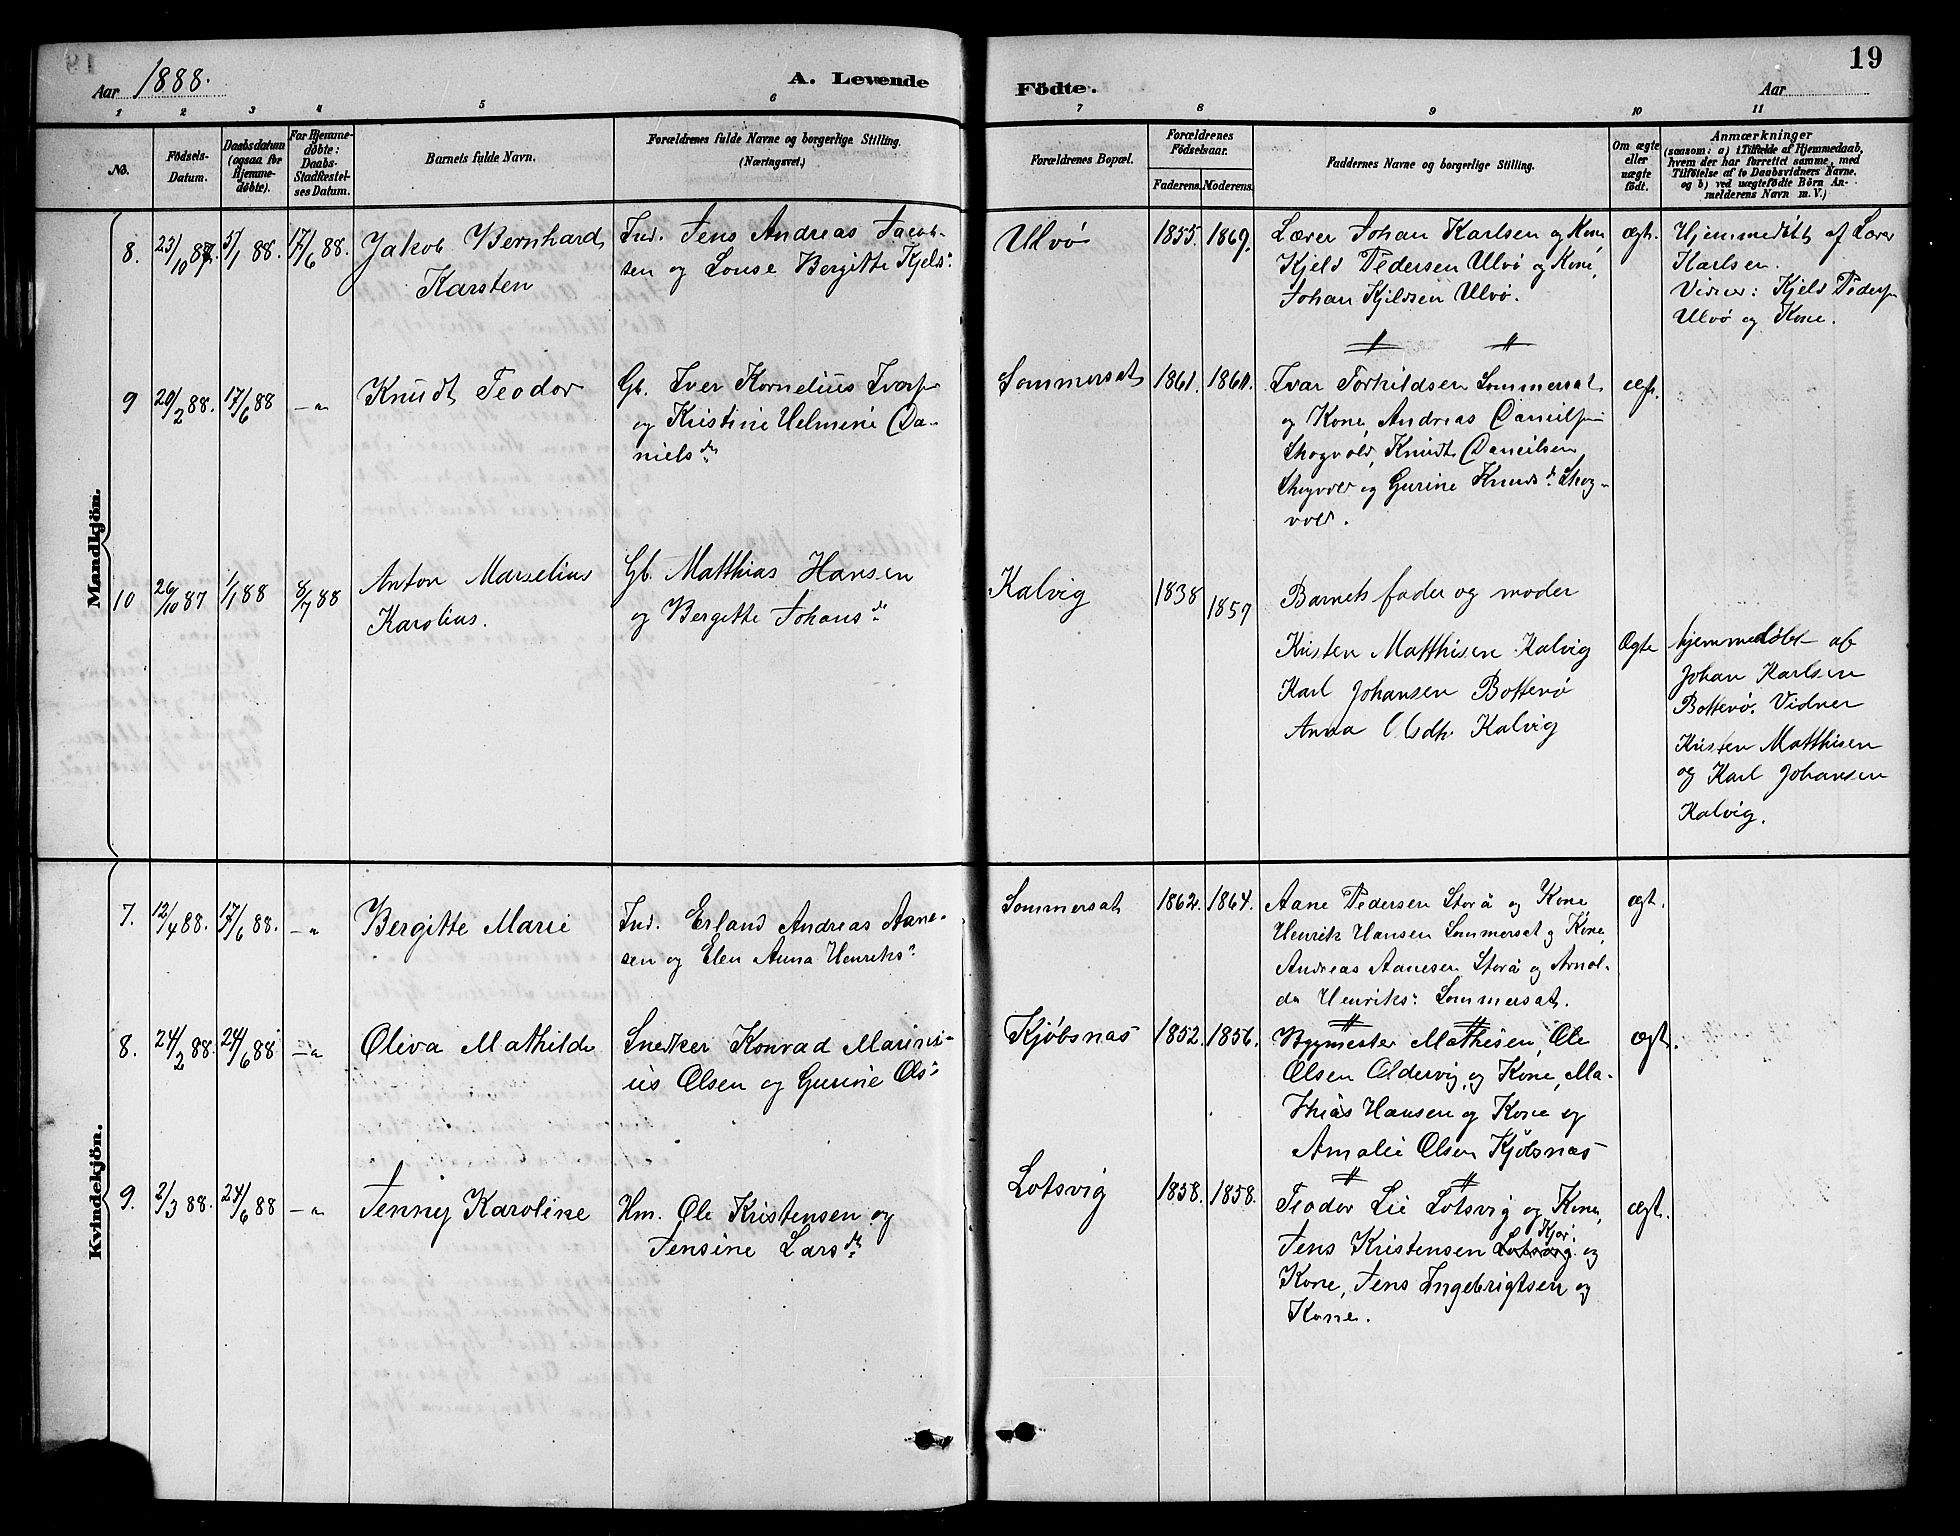 19
Aar 1888.
A. Levende
Födte.
Aar
1 2 3 4 5 6 7 8 9 10 11
No.
Födsels-Datum.
Daabsdatum (ogsaa for Hjemmedöbte).
For Hjemmedöbte: Daabs-Stadfæstelses Datum.
Barnets fulde Navn.
Forældrenes fulde Navne og borgerlige Stilling.
(Næringsvei.)
Forældrenes Bopæl.
Forældrenes Födselsaar.
Faderens. Moderens.
Faddernes Navne og borgerlige Stilling.
Om ægte eller uægte födt.
Anmærkninger
(saasom: a) i Tilfælde af Hjemmedaab,
hvem der har forrettet samme, med
Tilföielse af to Daabsvidners Navne.
og b) ved uægtefödte Börn An-
melderens Navn m. V.)
Mandkjön.
8. 23/10 87. 5/1 88. 17/6 88. Jakob Bernhard
Karsten
Ind. Jens Andreas Jacob-
sen og Louse Bergitte Kjelsd:
Ulvö 1855. 1869.
Lærer Johan Karlsen og Kone
Kjeld Pedersen Ulvö og Kone,
Johan Kjeldsen Ulvö.
ægt.
Hjemmedöbt af Lærer
Karlsen.
Vidner: Kjeld Peders.
Ulvö og Kone.
9 20/2 88. 17/6 88 — " Knudt Teodor
Gb. Iver Kornelius Ivers.
og Kristine Helmine Da-
niels dr
Sommersat 1861. 1860.
Ivar Torkildsen Sommersat
og Kone, Andreas Daneils.
Skogvold, Knudt Daneilsen
Skogvold og Gurine Knuds d. Skog-
vold.
ægt.
10 26/10 87 1/1 88 8/7 88 Anton Marselius
Karolius.
Gb. Matthias Hansen
og Bergitte Johansd:
Kalvig 1838 1857
Barnets fader og moder
Kristen Matthisen Kalvig
Karl Johansen Bottevö
Anna Olsdtr. Kalvig
Ægte
hjemmedöbt af
Johan Karlsen
Bottevö. Vidner
Kristen Matthisen
og Karl Johansen
Kalvig.
Kvindekjön.
7. 12/4 88. 17/6 88. — " Bergitte Marie
Ind. Erland Andreas Aane-
sen og Elen Anna Henriksd:
Sommersat 1862. 1864.
Aane Pedersen Storå og Kone
Henrik Hansen Sommersat og Kone,
Andreas Aanesen Storå og Arnol-
da Henriks: Sommersat.
ægt.
8. 24/2 88. 24/6 88 — " Oliva Mathilde
Snedker Konrad Marini-
us Olsen og Gurine Ols:
Kjöbsnas 1852. 1856.
Bygmester Mathisen, Ole
Olsen Oldervig, og Kone, Ma-
thias Hansen og Kone og
Amalie Olsen Kjöbsnas
ægt.
9. 2/3 88. 24/6 88 — " Jenny Karoline
Hm. Ole Kristensen og
Jensine Lars dtr
Lotsvig 1858. 1858.
Teodor Lie Lotsvig og Kone,
Jens Kristensen Lotsvig Kjör: og
Kone, Jens Ingebrigtsen og
Kone.
ægt.